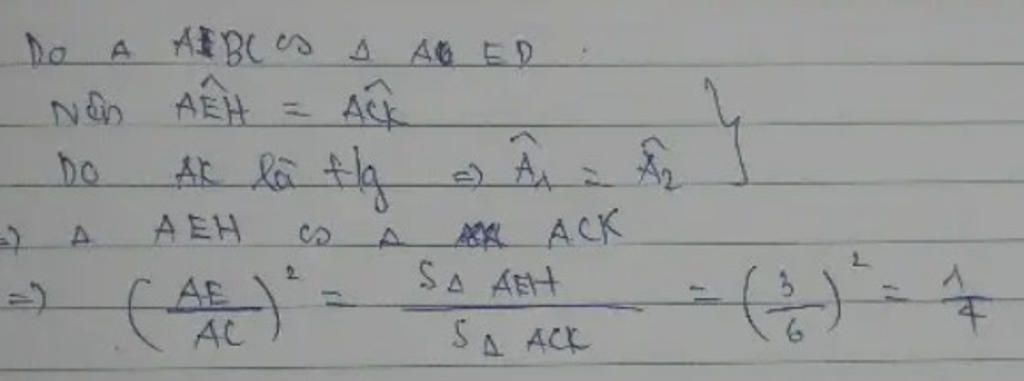 Do Δ ABC ∽ Δ AED.
Nên \widehat{AEH} = \widehat{ACK}
Do AK là t/g => \widehat{A}_1 = \widehat{A}_2 }
=> Δ AEH ∽ Δ ACK
=> (AE/AC)^2 = SΔ AEH / SΔ ACK = (3/6)^2 = 1/4